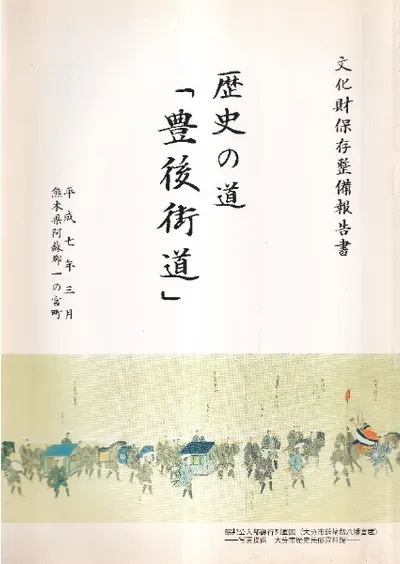 文化財保存整備報告書
歴史の道
「豊後街道」
平成七年三月
熊本県阿蘇郡一の宮町
大分市歴史民俗資料館